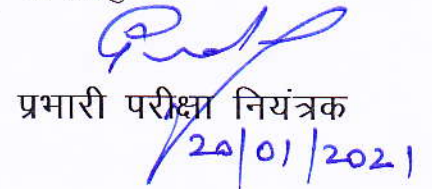 प्रभारी परीक्षा नियंत्रक
20/01/2021